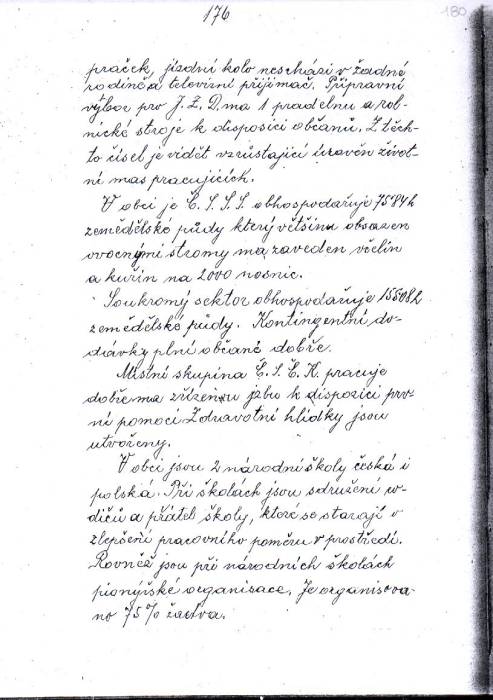 176
180
praček, jízdní kolo neschází v žádné
rodině a televizní přijimač. Přípravní
výbor pro J. Z. D. ma 1 pradelnu a rol-
nické stroje k disposici občanů. Z těch-
to čísel je vidět vzrůstající úroveň život-
ní mas pracujících.
V obci je Č. S. S. S. obhospodařuje 7584 h
zemědělské půdy který většinu obsazen
ovocnými stromy ma zaveden včelín
a kuřin na 2000 nosnic.
Soukromý sektor obhospodařuje
zemědělské půdy. Kontingentní do-
dávky plní občané dobře.
Místní skupina Č. S. Č. K. pracuje
dobře ma zřízenou jzbu k dispozici prv-
ní pomoci Zdravotní hlídky jsou
utvořeny.
V obci jsou 2 národní školy česká i
polská. Při školách jsou sdružení ro-
dičů a přátel školy, které se starají o
zlepšení pracovního poměru v prostředí.
Rovněž jsou při národních školách
pionýřské organisace. Je organisova-
no 75% žactva.